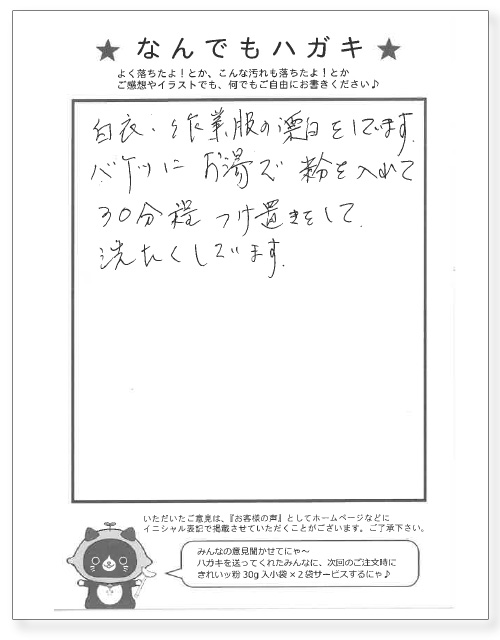 ★ なんでもハガキ ★
よく落ちたよ！とか、こんな汚れも落ちたよ！とか
ご感想やイラストでも、何でもご自由にお書きください♪
白衣・作業服の漂白をしています。
バケツにお湯で粉を入れて
30分程つけ置きをして、
洗たくしています。
いただいたご意見は、『お客様の声』としてホームページなどに
イニシャル表記で掲載させていただくことがございます。ご了承下さい。
みんなの意見聞かせてにゃ～
ハガキを送ってくれたみんなに、次回のご注文時に
きれいッ粉 30g 入小袋 × 2 袋サービスするにゃ♪